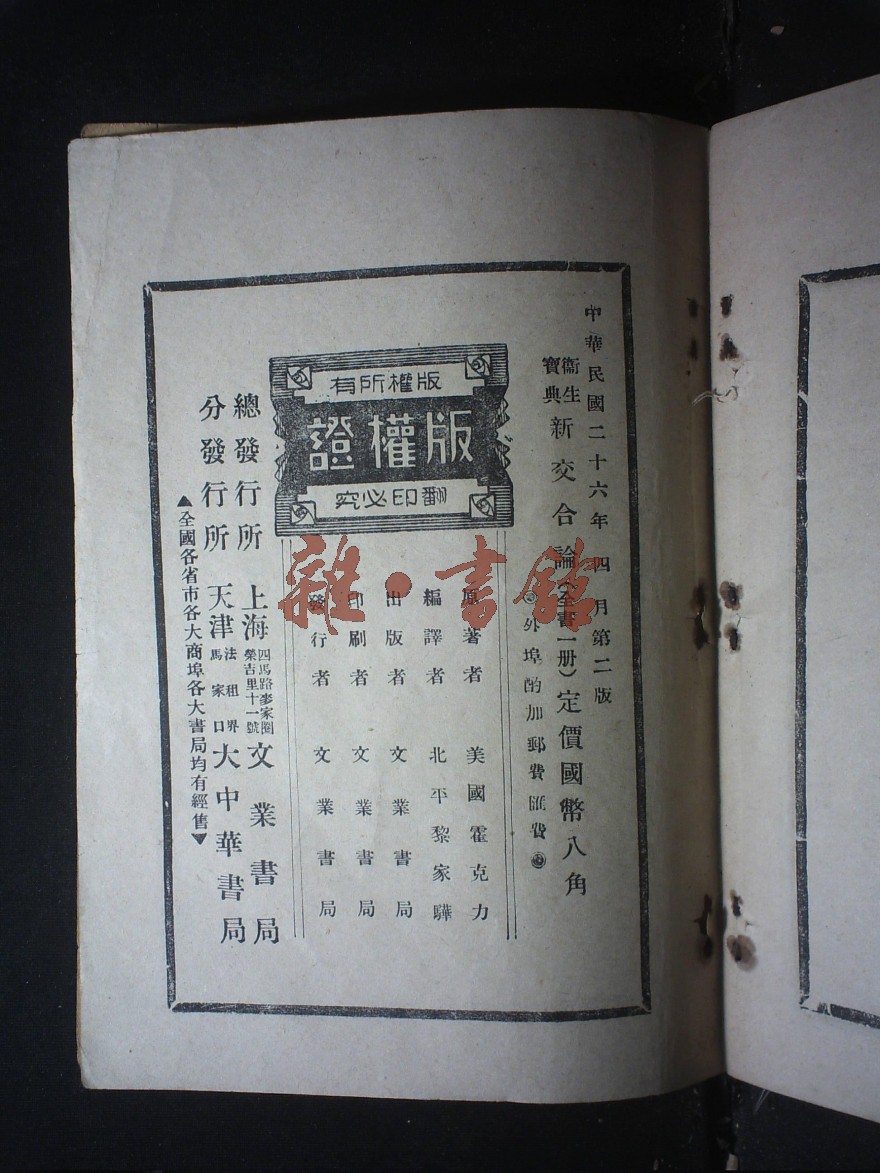 中華民國二十六年四月第二版
衞生寶典 新交合論(全書一册)定價國幣八角
外埠酌加郵費匯費
版權所有
版權證
翻印必究
原著者 美國霍克力
編譯者 北平黎家驊
出版者 文業書局
印刷者 文業書局
發行者 文業書局
總發行所 上海四馬路麥家圈榮吉里十一號 文業書局
分發行所 天津法租界馬家口 大中華書局
▲全國各省市各大商埠各大書局均有經售▼
雜·書館